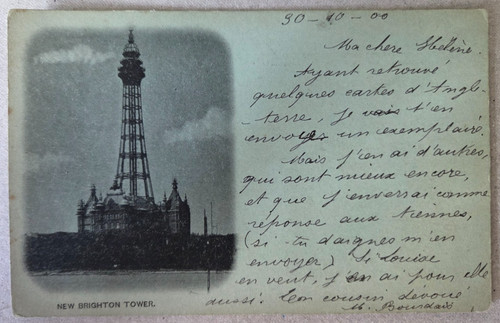 30-10-00
Ma chere Hélène.
Ayant retrouvé
quelques cartes d'Angle-
terre, je vais t'en
envoyer un exemplaire.
Mais j'en ai d'autres,
qui sont mieux encore,
et que j'enverrai comme
réponse aux tiennes,
(si tu daignes m'en
envoyer) Si Louise
en veut, j'en ai pour elle
aussi. Ton cousin dévoué
M. Bourdais
NEW BRIGHTON TOWER.